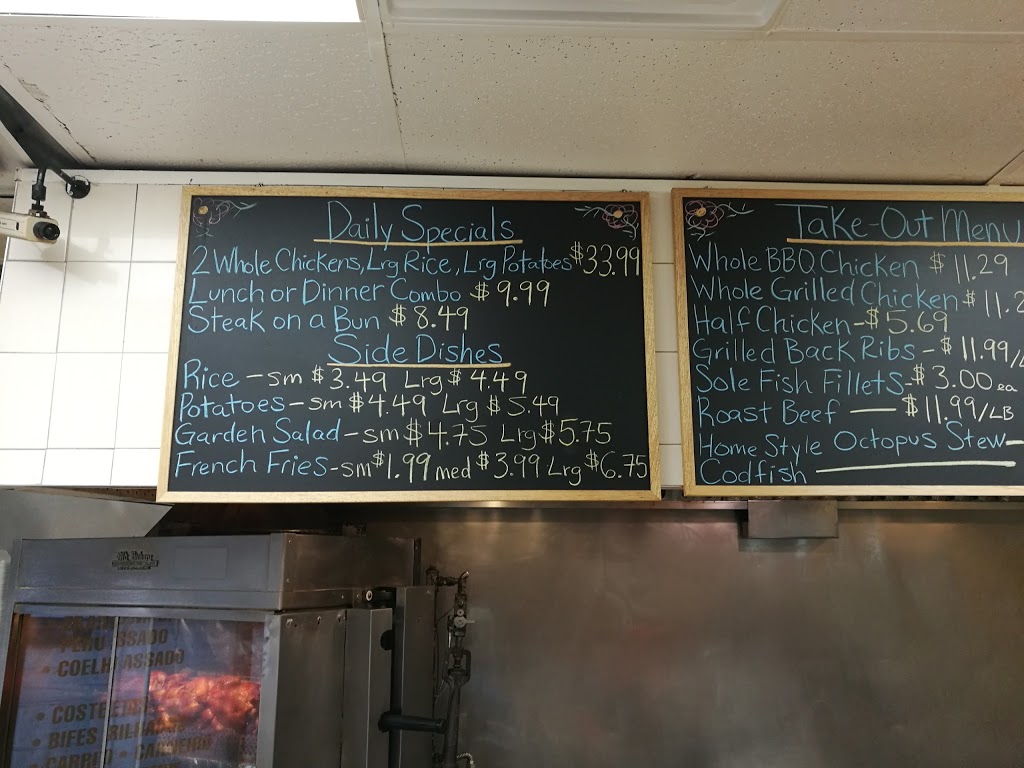 Daily Specials
2 Whole Chickens, Lrg Rice, Lrg Potatoes $33.99
Lunch or Dinner Combo $9.99
Steak on a Bun $8.49
Side Dishes
Rice - sm $3.49 Lrg $4.49
Potatoes - sm $4.49 Lrg $5.49
Garden Salad - sm $4.75 Lrg $5.75
French Fries - sm $1.99 med $3.99 Lrg $6.75
Take-Out Menu
Whole BBQ Chicken $11.29
Whole Grilled Chicken $11.2
Half Chicken - $5.69
Grilled Back Ribs - $11.99/L
Sole Fish Fillets - $3.00 ea
Roast Beef — $11.99/LB
Home Style Octopus Stew —
Codfish
ASSADO
• COELH ASSADO
• COSTELETAS
• BIFES GRELHADOS